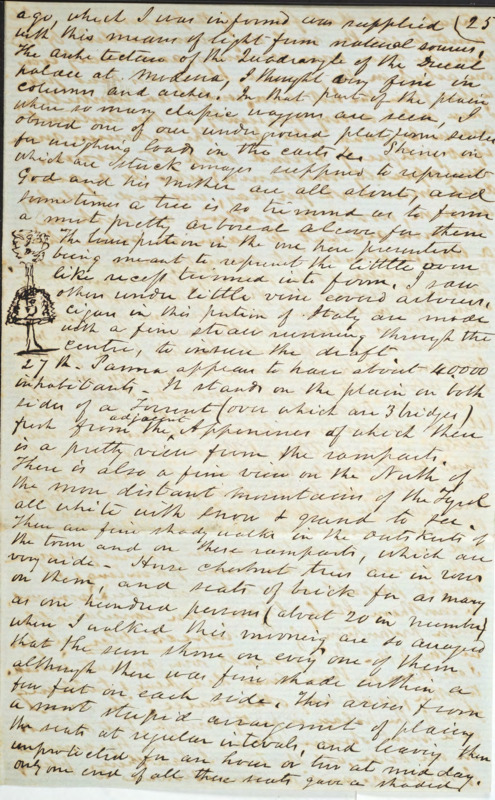 ago, which I was informed was supplied (25
with this means of light from natural sources.
The architecture of the Quadrangle of the Ducal
palace at Modena, I thought very fine in
columns and arches. In that part of the plain
where so many classic waggons are seen, I
observed one of our underground platform scales
for weighing loads in the carts &c. Shrines in
which are stuck images supposed to represent
God and his mother are all about, and
sometimes a tree is so trimmed as to form
a most pretty arboreal alcove for them
The in the one here presented
being meant to represent the little oven
like recess trimmed into form. I saw
others under little vine covered arbours.
Cigars in this portion of Italy are made
with a fine straw running through the
centre, to insure the draft.
27th. Parma appears to have about 40000
inhabitants. It stands on the plain on both
sides of a Torrent (over which are 3 bridges)
fresh from the adjacent Appenines of which there
is a pretty view from the ramparts.
There is also a fine view on the North of
the more distant mountains of the Tyrol
all white with snow & grand to see.
There are fine shady walks in the outskirts of
the town and on these ramparts, which are
very wide. Horse chestnut trees are in rows
on them, and seats of brick for as many
as one hundred persons (about 20 in number)
where I walked this morning are so arranged
that the sun shone on every one of them
although there was fine shade within a
few feet on each side. This arises from
a most stupid arrangement of placing
the seats at regular intervals, and leaving them
unprotected for an hour or two at mid day.
only one end of all these seats gave a shaded